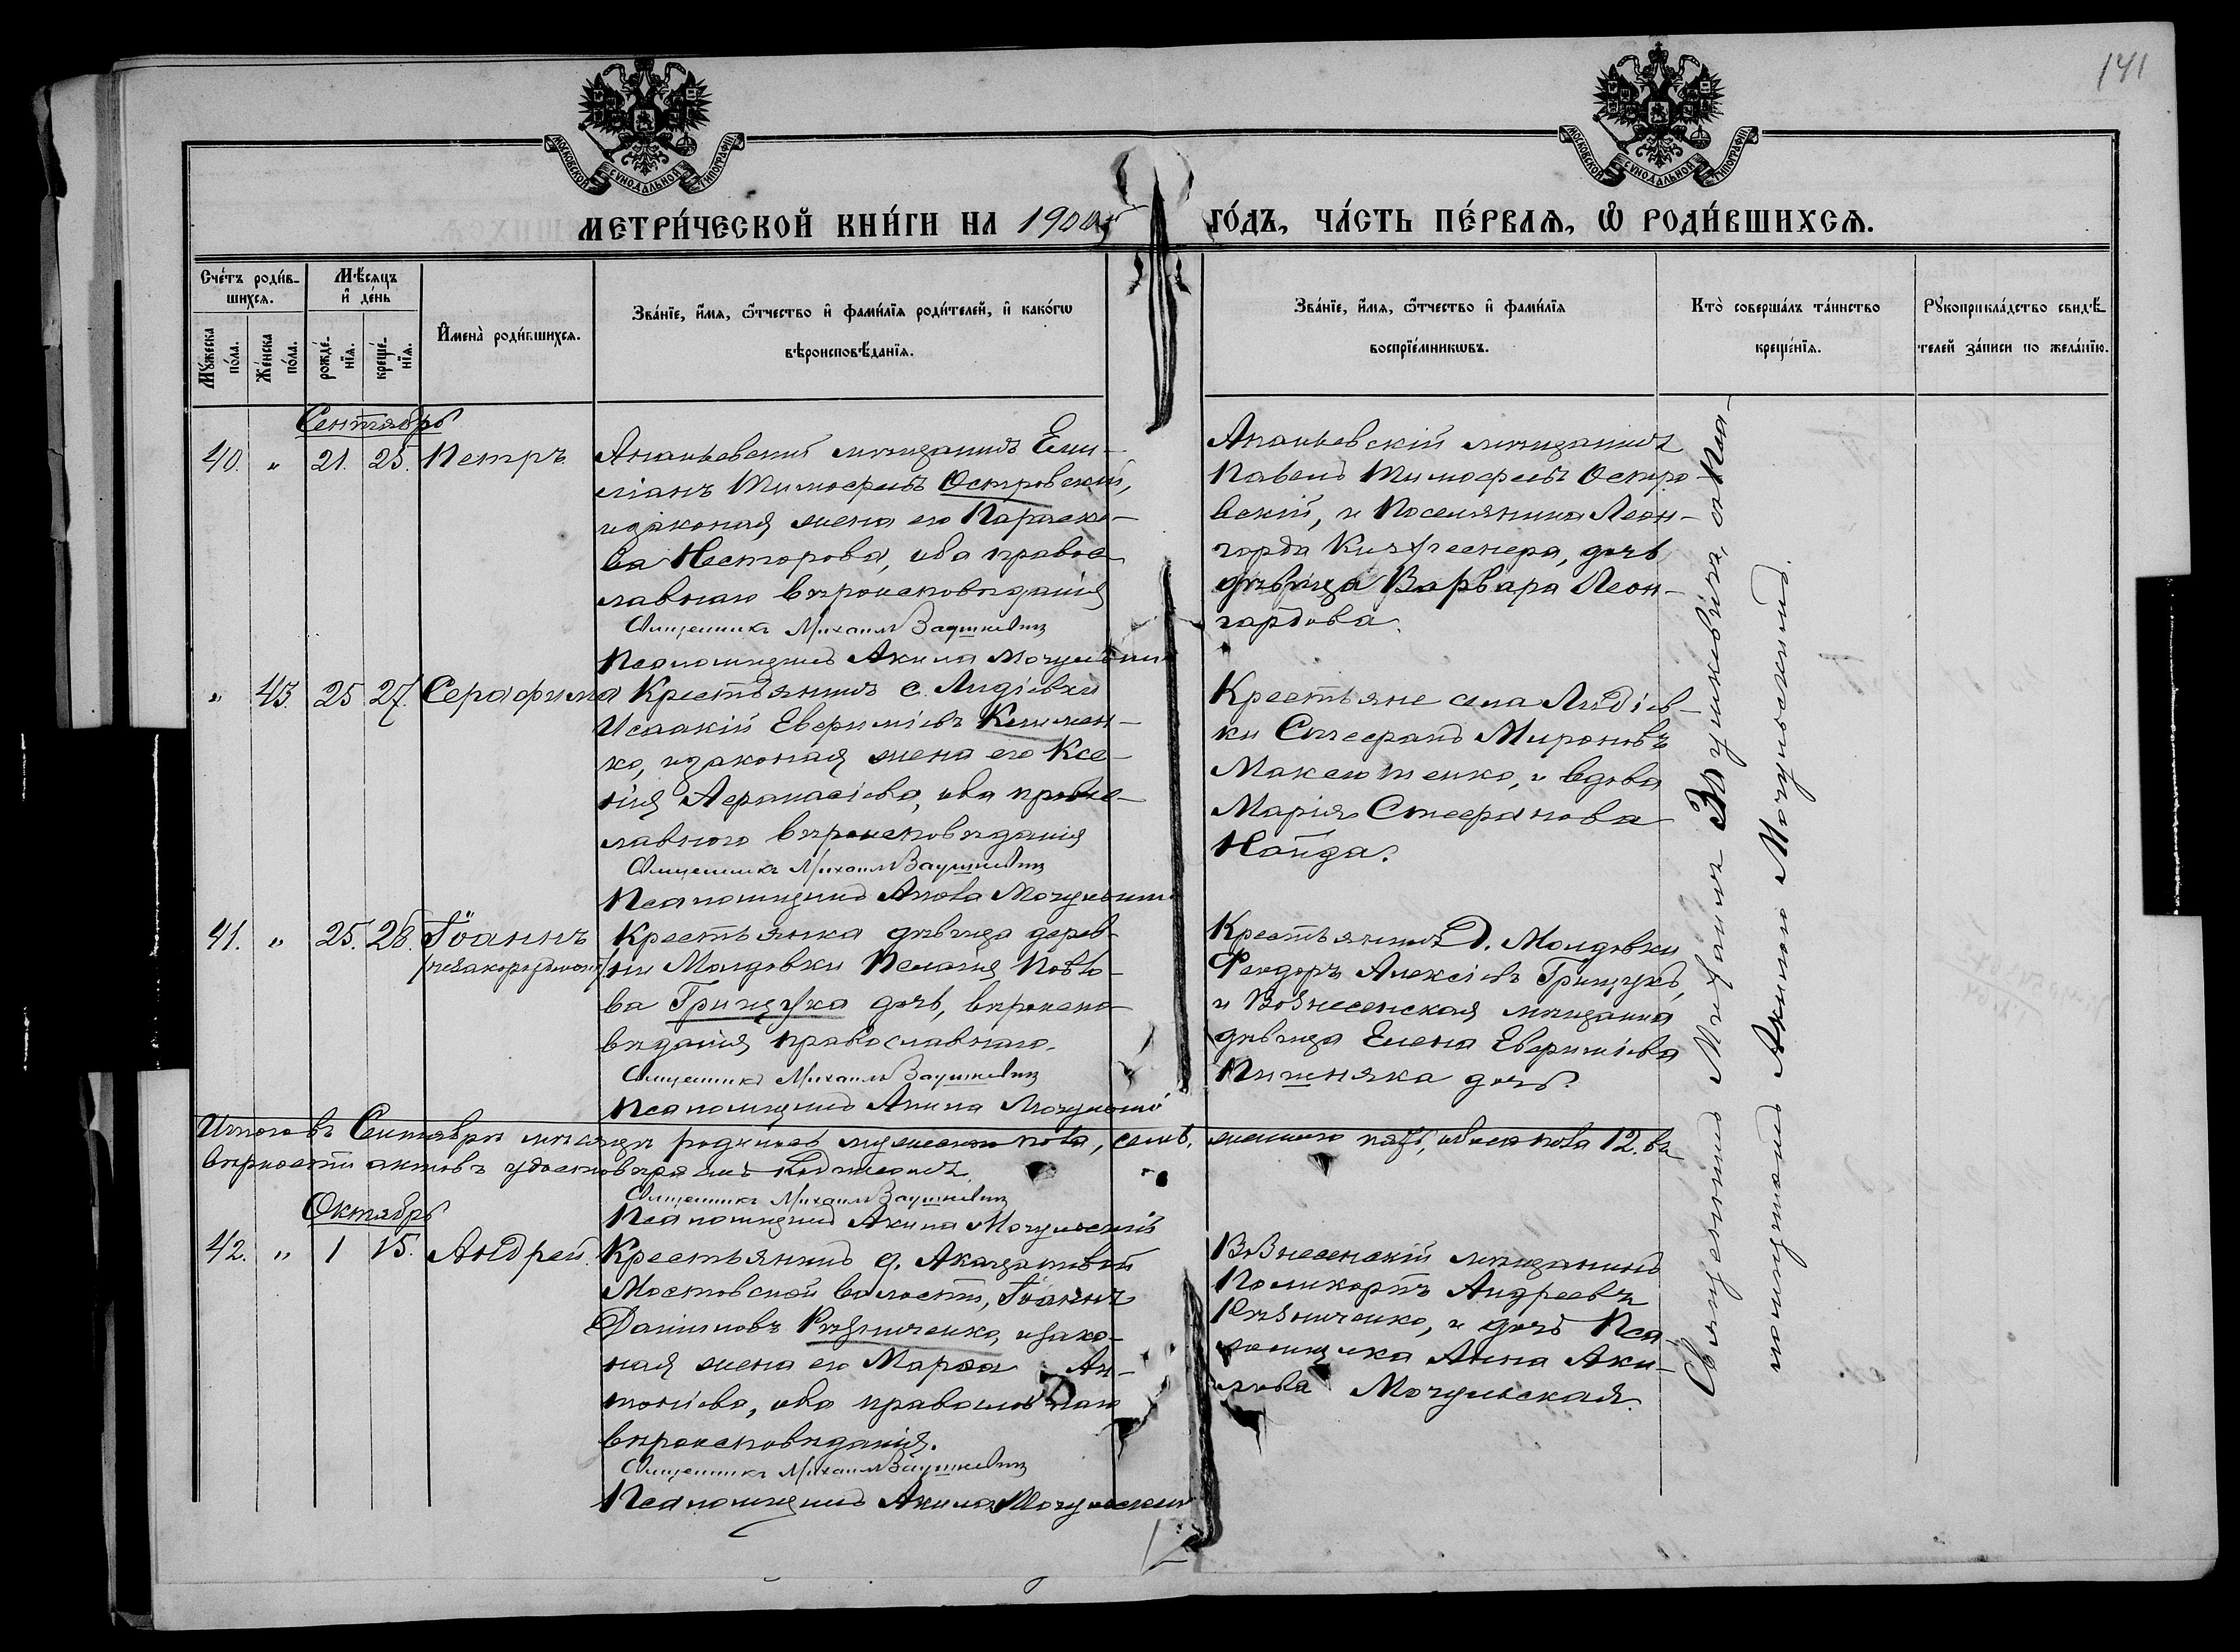 141
МОСКОВСКОЙ СѴНОДАЛЬНОЙ ТИПОГРАФІИ
МОСКОВСКОЙ СѴНОДАЛЬНОЙ ТИПОГРАФІИ
МЕТРИ́ЧЕСКОЙ КНИ́ГИ НА 1900й ГО́ДЪ, ЧА́СТЬ ПЕ́РВАѦ, Ѽ РОДИ́ВШИХСѦ.
Сче́тъ роди́в-
шихсѧ.
Мꙋ́жеска
по́ла.
Же́нска
по́ла.
Мѣ́сѧцъ
и҆ де́нь
рожде́-
нїѧ.
креще́-
нїѧ.
И҆мена̀ роди́вшихсѧ.
Зва́нїе, и҆́мѧ, ѻ҆́тчество и҆ фами́лїѧ роди́телей, и҆ како́гѡ
вѣроисповѣ́данїѧ.
Зва́нїе, и҆́мѧ, ѻ҆́тчество и҆ фами́лїѧ
воспрїе́мникѡвъ.
Кто̀ соверша́лъ та́инство
креще́нїѧ.
Рꙋкоприкла́дство свидѣ́-
телей за́писи по жела́нїю.
Сентябрь
40. " 21. 25. Петръ
Ананьевскій мѣщанинъ Еми-
ліанъ Тимофеевъ Островскій,
и законая жена его Параске-
ва Несторова, оба правос-
лавнаго вѣроисповѣданія
Священникъ Михаилъ
Псаломщикъ Акила Мочульскій
Ананьевскій мѣщанинъ
Павелъ Тимофеевъ Остро-
вскій, и Поселянина Леон-
гарда дочь
дѣвица Варвара Леон-
гардова.
" 43. 25 27. Серафима
Крестьянинъ с. Лидіевки
Исаакій Евфиміевъ Клымен-
ко, и законая жена его Ксе-
нія Афанасіева, оба правос-
лавного вѣроисповѣданія
Священникъ Михаилъ
Псаломщикъ Акила Мочульскій
Крестьяне села Лидіев-
ки Стефанъ Мироновъ
Максютенко, и вдова
Марія Стефанова
Найда.
41. " 25. 28. Іоаннъ
/незаконорожденный/
Крестьянка дѣвица дерев-
ни Молдовки Пелагія Іовле-
ва Грищука дочь, вѣроиспо-
вѣданія православнаго.
Священникъ Михаилъ
Псаломщикъ Акила Мочульскій
Крестьянинъ д. Молдовки
Феодоръ Алексіевъ Грищукъ,
и Вознесенская мѣщанка
дѣвица Елена Евфиміева
Пишняка дочь.
Итого въ Сентябрѣ мѣсяцѣ родилось мужескаго пола, семь, женскаго пять, обоего пола 12. въ
вѣрности актовъ удостовѣряемъ подписомъ
Священникъ Михаилъ
Псаломщикъ Акила Мочульскій
Октябрь
42. " 1 15. Андрей
Крестьянинъ д. Акацатовой
Мостовской волости, Іоаннъ
Даніиловъ Рѣзниченко, и зако-
ная жена его Марфа Ан-
тоніева, оба православнаго
вѣроисповѣданія.
Священникъ Михаилъ
Псаломщикъ Акила Мочульскій
Вознесенскій мѣщанинъ
Поликарпъ Андреевъ
Рѣзниченко, и дочь Пса-
ломщика Анна Аки-
лова Мочульская.
Священникъ Михаилъ съ Пса-
ломщикомъ Акилою Мочульскимъ.